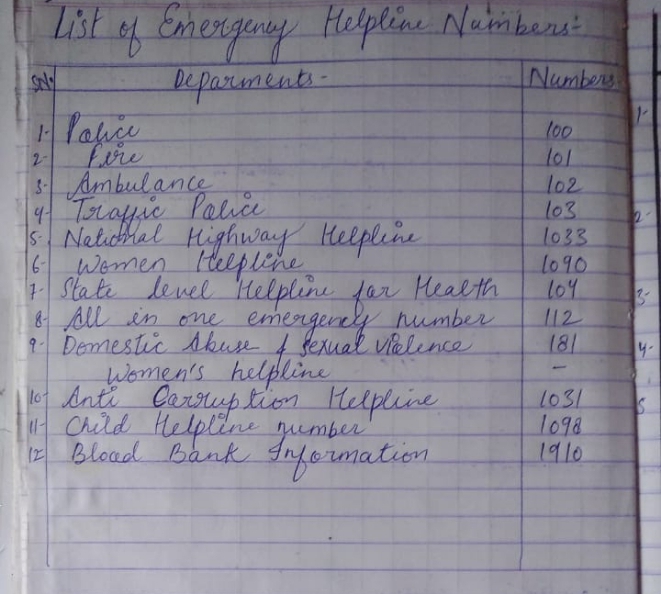 List of Emergency Helpline Numbers:-
SN. Deparments - Numbers
1- Police 100
2- Fire 101
3- Ambulance 102
4- Traffic Police 103
5- National Highway Helpline 1033
6- Women Helpline 1090
7- State level Helpline for Health 104
8- All in one emergency number 112
9- Domestic Abuse & sexual violence 181
women's helpline -
10- Anti Carruption Helpline 1031
11- Child Helpline number 1098
12 Blood Bank Information 1910
1-
2-
3-
4-
5